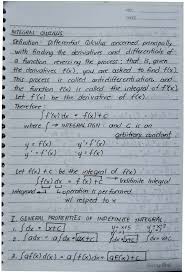 INTEGRAL CALCULUS
Definition: Differential Calculus concerned principally
with finding the derivatives and differentials of
a function reversing the process; that is, given
the derivatives f'(x), you are asked to find f(x).
This process is called antidifferentiation and
the function f(x) is called the integral of f'(x).
Let f'(x) be the derivative of f(x).
Therefore:
∫f'(x)dx = f(x)+C
where ∫ → INTEGRAL SIGN and C is an
arbitrary constant
y = f(x) y' = f'(x)
Let f(x)+C be the integral of f(x)
∫f(x)dx = f(x)+C → Indefinite Integral
Integrand operation is performed
w/ respect to x
I. GENERAL PROPERTIES OF INDEFINITE INTEGRAL
1. ∫dx = x+C